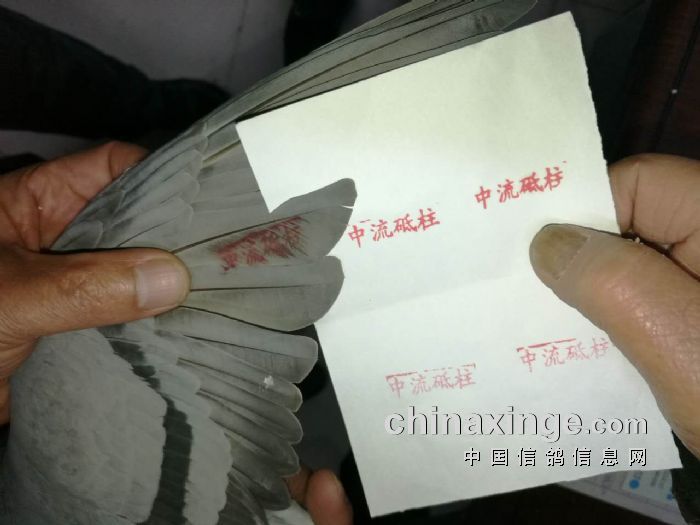 中流砥柱
中流砥柱
中流砥柱
中流砥柱
chinaxinge.com
中国信鸽信息网